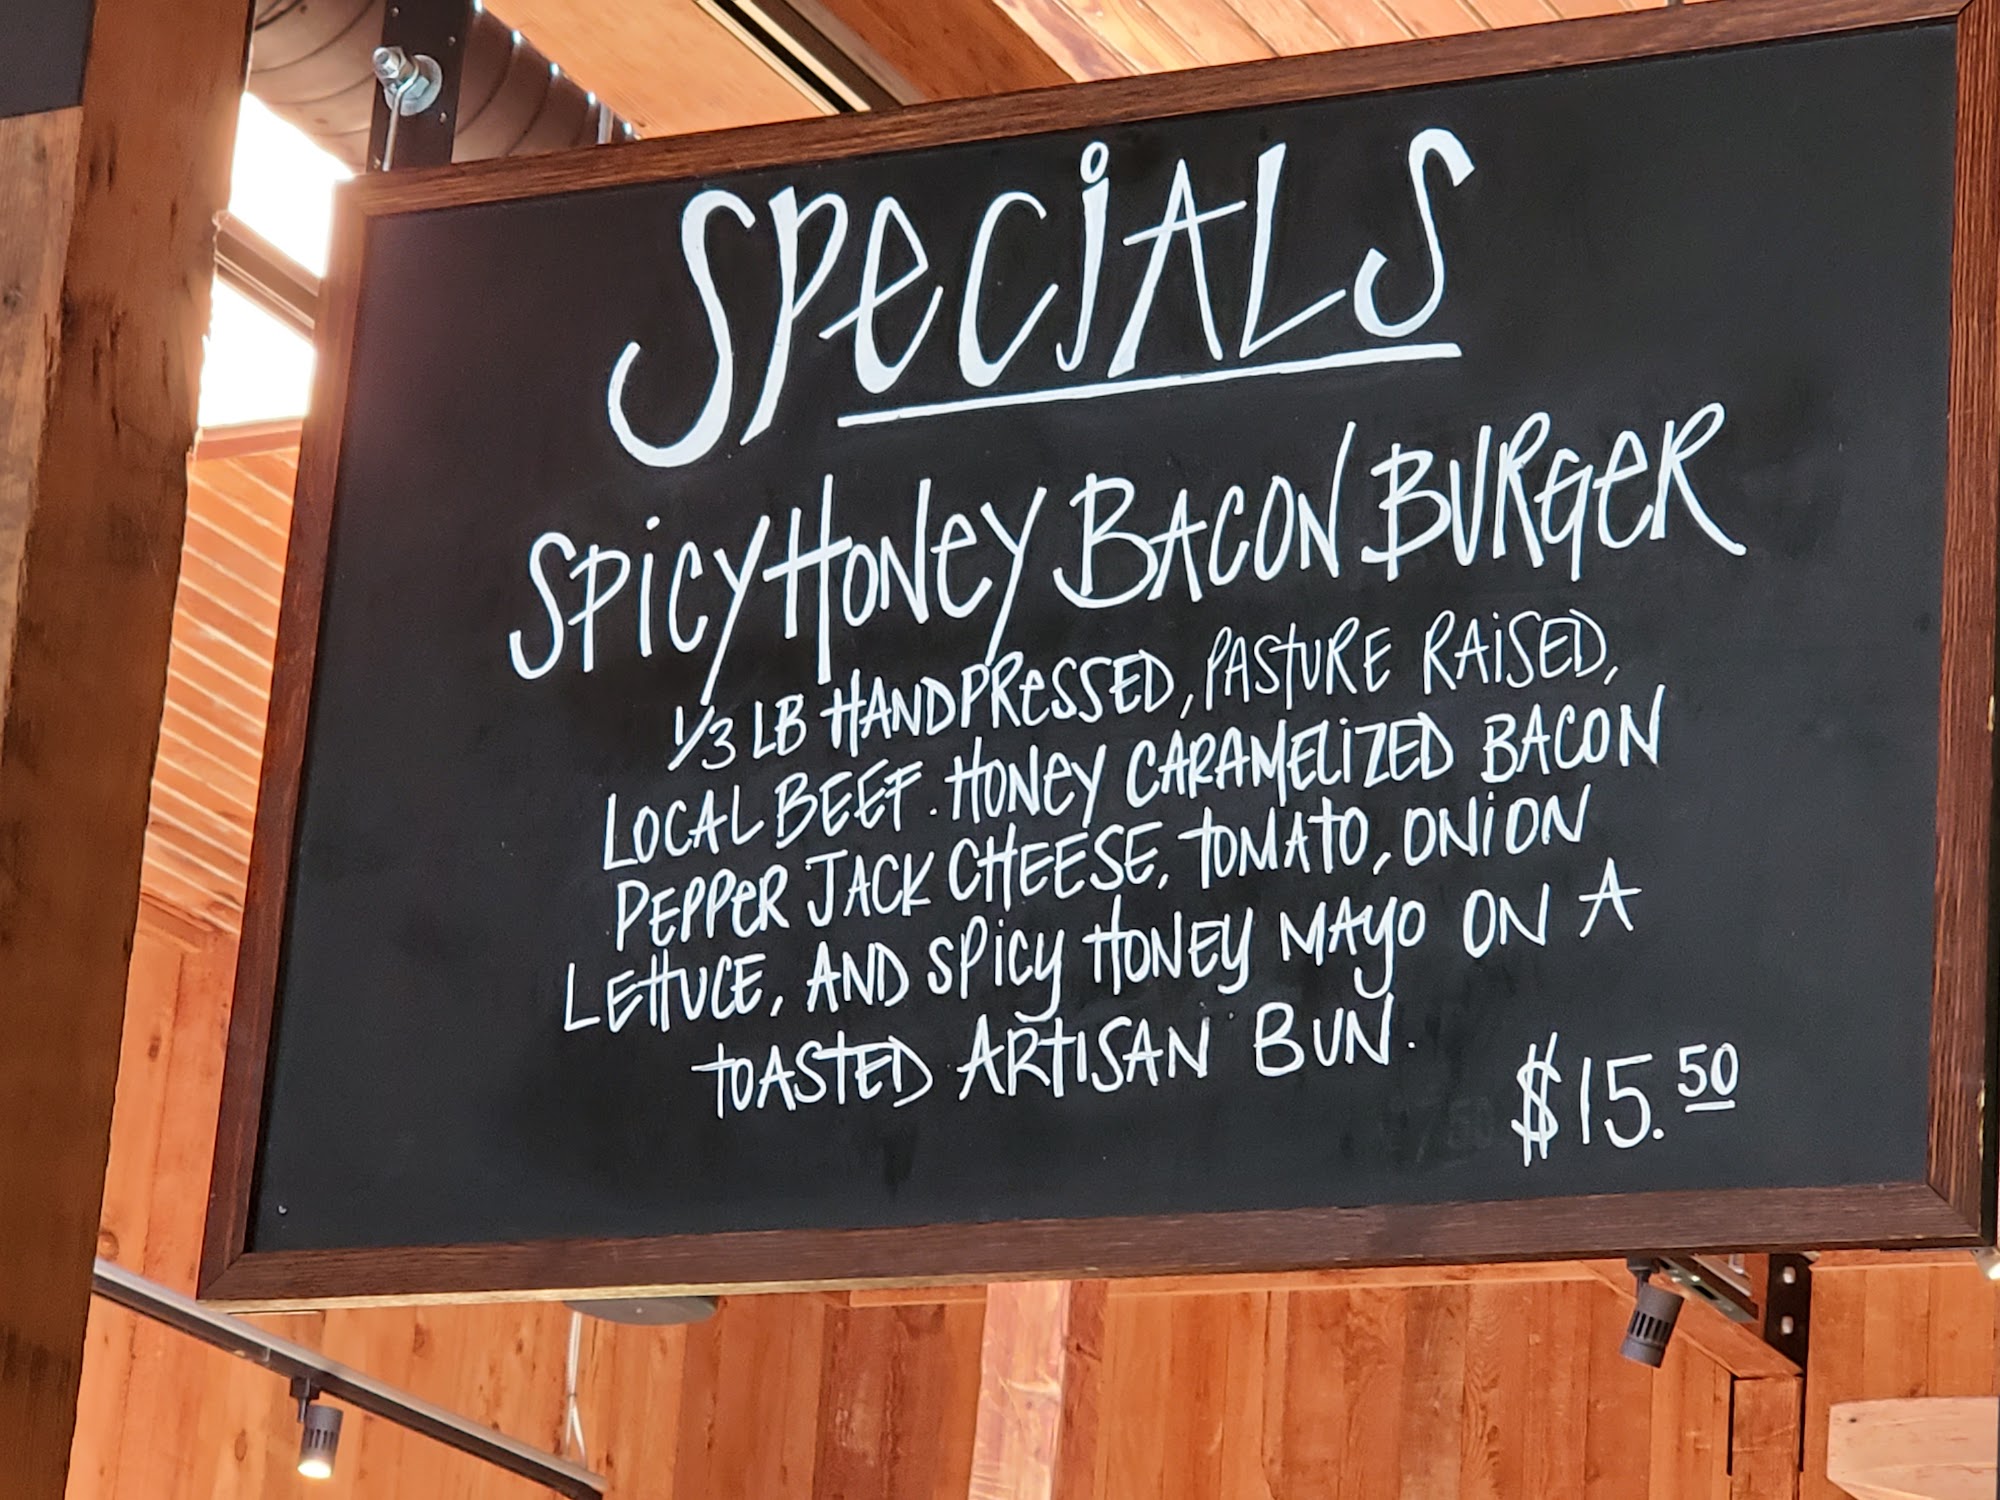 SPeCiALS
SPiCY HONeY BACON BURGeR
1/3 LB HANDPReSSED, PAStURE RAiSED,
LOCAL BEEF. HONEY CARAMELiZED BACON
PEPPeR JACK CHEESE, tOMAtO, ONiON
LEttUCE, AND SPiCy HONEy MAyO ON A
tOASTED ARtISAN BUN.
$15.50